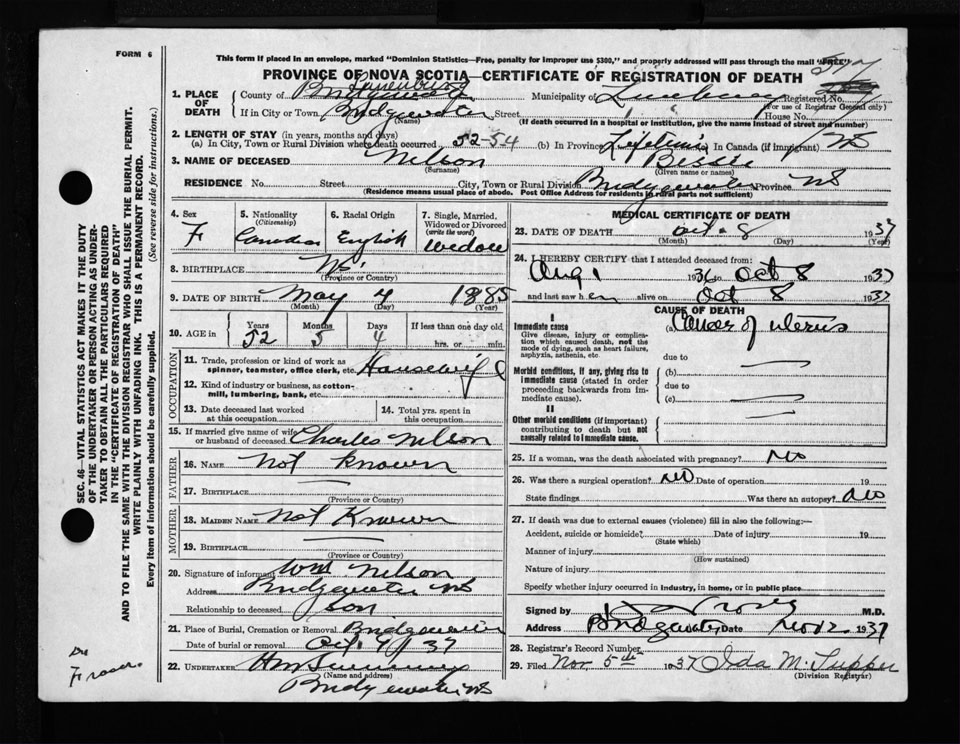 FORM 6
This form if placed in an envelope, marked "Dominion Statistics—Free, penalty for improper use $300," and properly addressed will pass through the mail "FREE"
PROVINCE OF NOVA SCOTIA—CERTIFICATE OF REGISTRATION OF DEATH
1. PLACE OF DEATH
County of Lunenburg Municipality of Registered No.
(For use of Registrar General only)
If in City or Town Bridgewater Street House No.
(Name) (If death occurred in a hospital or institution, give the name instead of street and number)
2. LENGTH OF STAY (in years, months and days)
(a) In City, Town or Rural Division where death occurred 52-54 (b) In Province Lifetime In Canada (if immigrant)
3. NAME OF DECEASED Nelson Bessie
(Surname) (Given name or names)
RESIDENCE No. Street City, Town or Rural Division Bridgewater Province NS
(Residence means usual place of abode. Post Office Address for residents in rural parts not sufficient)
4. Sex F
5. Nationality (Citizenship) Canadian
6. Racial Origin English
7. Single, Married, Widowed or Divorced (write the word) Widow
8. BIRTHPLACE NS
(Province or Country)
9. DATE OF BIRTH May 4 1885
(Month) (Day) (Year)
10. AGE in Years 52 Months 5 Days 4 If less than one day old hrs. or min.
OCCUPATION
11. Trade, profession or kind of work as spinner, teamster, office clerk, etc. Housewife
12. Kind of industry or business, as cotton-mill, lumbering, bank, etc.
13. Date deceased last worked at this occupation
14. Total yrs. spent in this occupation
15. If married give name of wife or husband of deceased Charles Nelson
FATHER
16. NAME Not Known
17. BIRTHPLACE —
(Province or Country)
MOTHER
18. MAIDEN NAME Not Known
19. BIRTHPLACE —
(Province or Country)
20. Signature of informant Wm Nelson
Address Bridgewater NS
Relationship to deceased son
21. Place of Burial, Cremation or Removal Bridgewater
Date of burial or removal Oct. 37
22. UNDERTAKER
(Name and address)
Bridgewater NS
MEDICAL CERTIFICATE OF DEATH
23. DATE OF DEATH Oct. 8 1937
(Month) (Day) (Year)
24. I HEREBY CERTIFY that I attended deceased from:
Aug 1 1936 to Oct 8 1937
and last saw h er alive on Oct 8 1937
CAUSE OF DEATH
I
Immediate cause
Give disease, injury or complication which caused death, not the mode of dying, such as heart failure, asphyxia, asthenia, etc.
(a) Cancer of uterus
due to
Morbid conditions, if any, giving rise to immediate cause (stated in order proceeding backwards from immediate cause).
(b) —
due to
(c) —
II
Other morbid conditions (if important) contributing to death but not causally related to immediate cause.
25. If a woman, was the death associated with pregnancy? No
26. Was there a surgical operation? No Date of operation 19
State findings Was there an autopsy? No
27. If death was due to external causes (violence) fill in also the following:—
Accident, suicide or homicide? Date of injury 19
(State which)
Manner of injury
(How sustained)
Nature of injury
Specify whether injury occurred in industry, in home, or in public place
Signed by M.D.
Address Bridgewater Date Nov 2 1937
28. Registrar's Record Number
29. Filed Nov 5th 1937 Ida M. Tupper
(Division Registrar)
SEC. 46—VITAL STATISTICS ACT MAKES IT THE DUTY
OF THE UNDERTAKER OR PERSON ACTING AS UNDER-
TAKER TO OBTAIN ALL THE PARTICULARS REQUIRED
IN THE "CERTIFICATE OF REGISTRATION OF DEATH"
AND TO FILE THE SAME WITH THE DIVISION REGISTRAR WHO SHALL ISSUE THE BURIAL PERMIT.
WRITE PLAINLY WITH UNFADING INK. THIS IS A PERMANENT RECORD.
Every item of information should be carefully supplied. (See reverse side for instructions.)
Dr
Fraser.